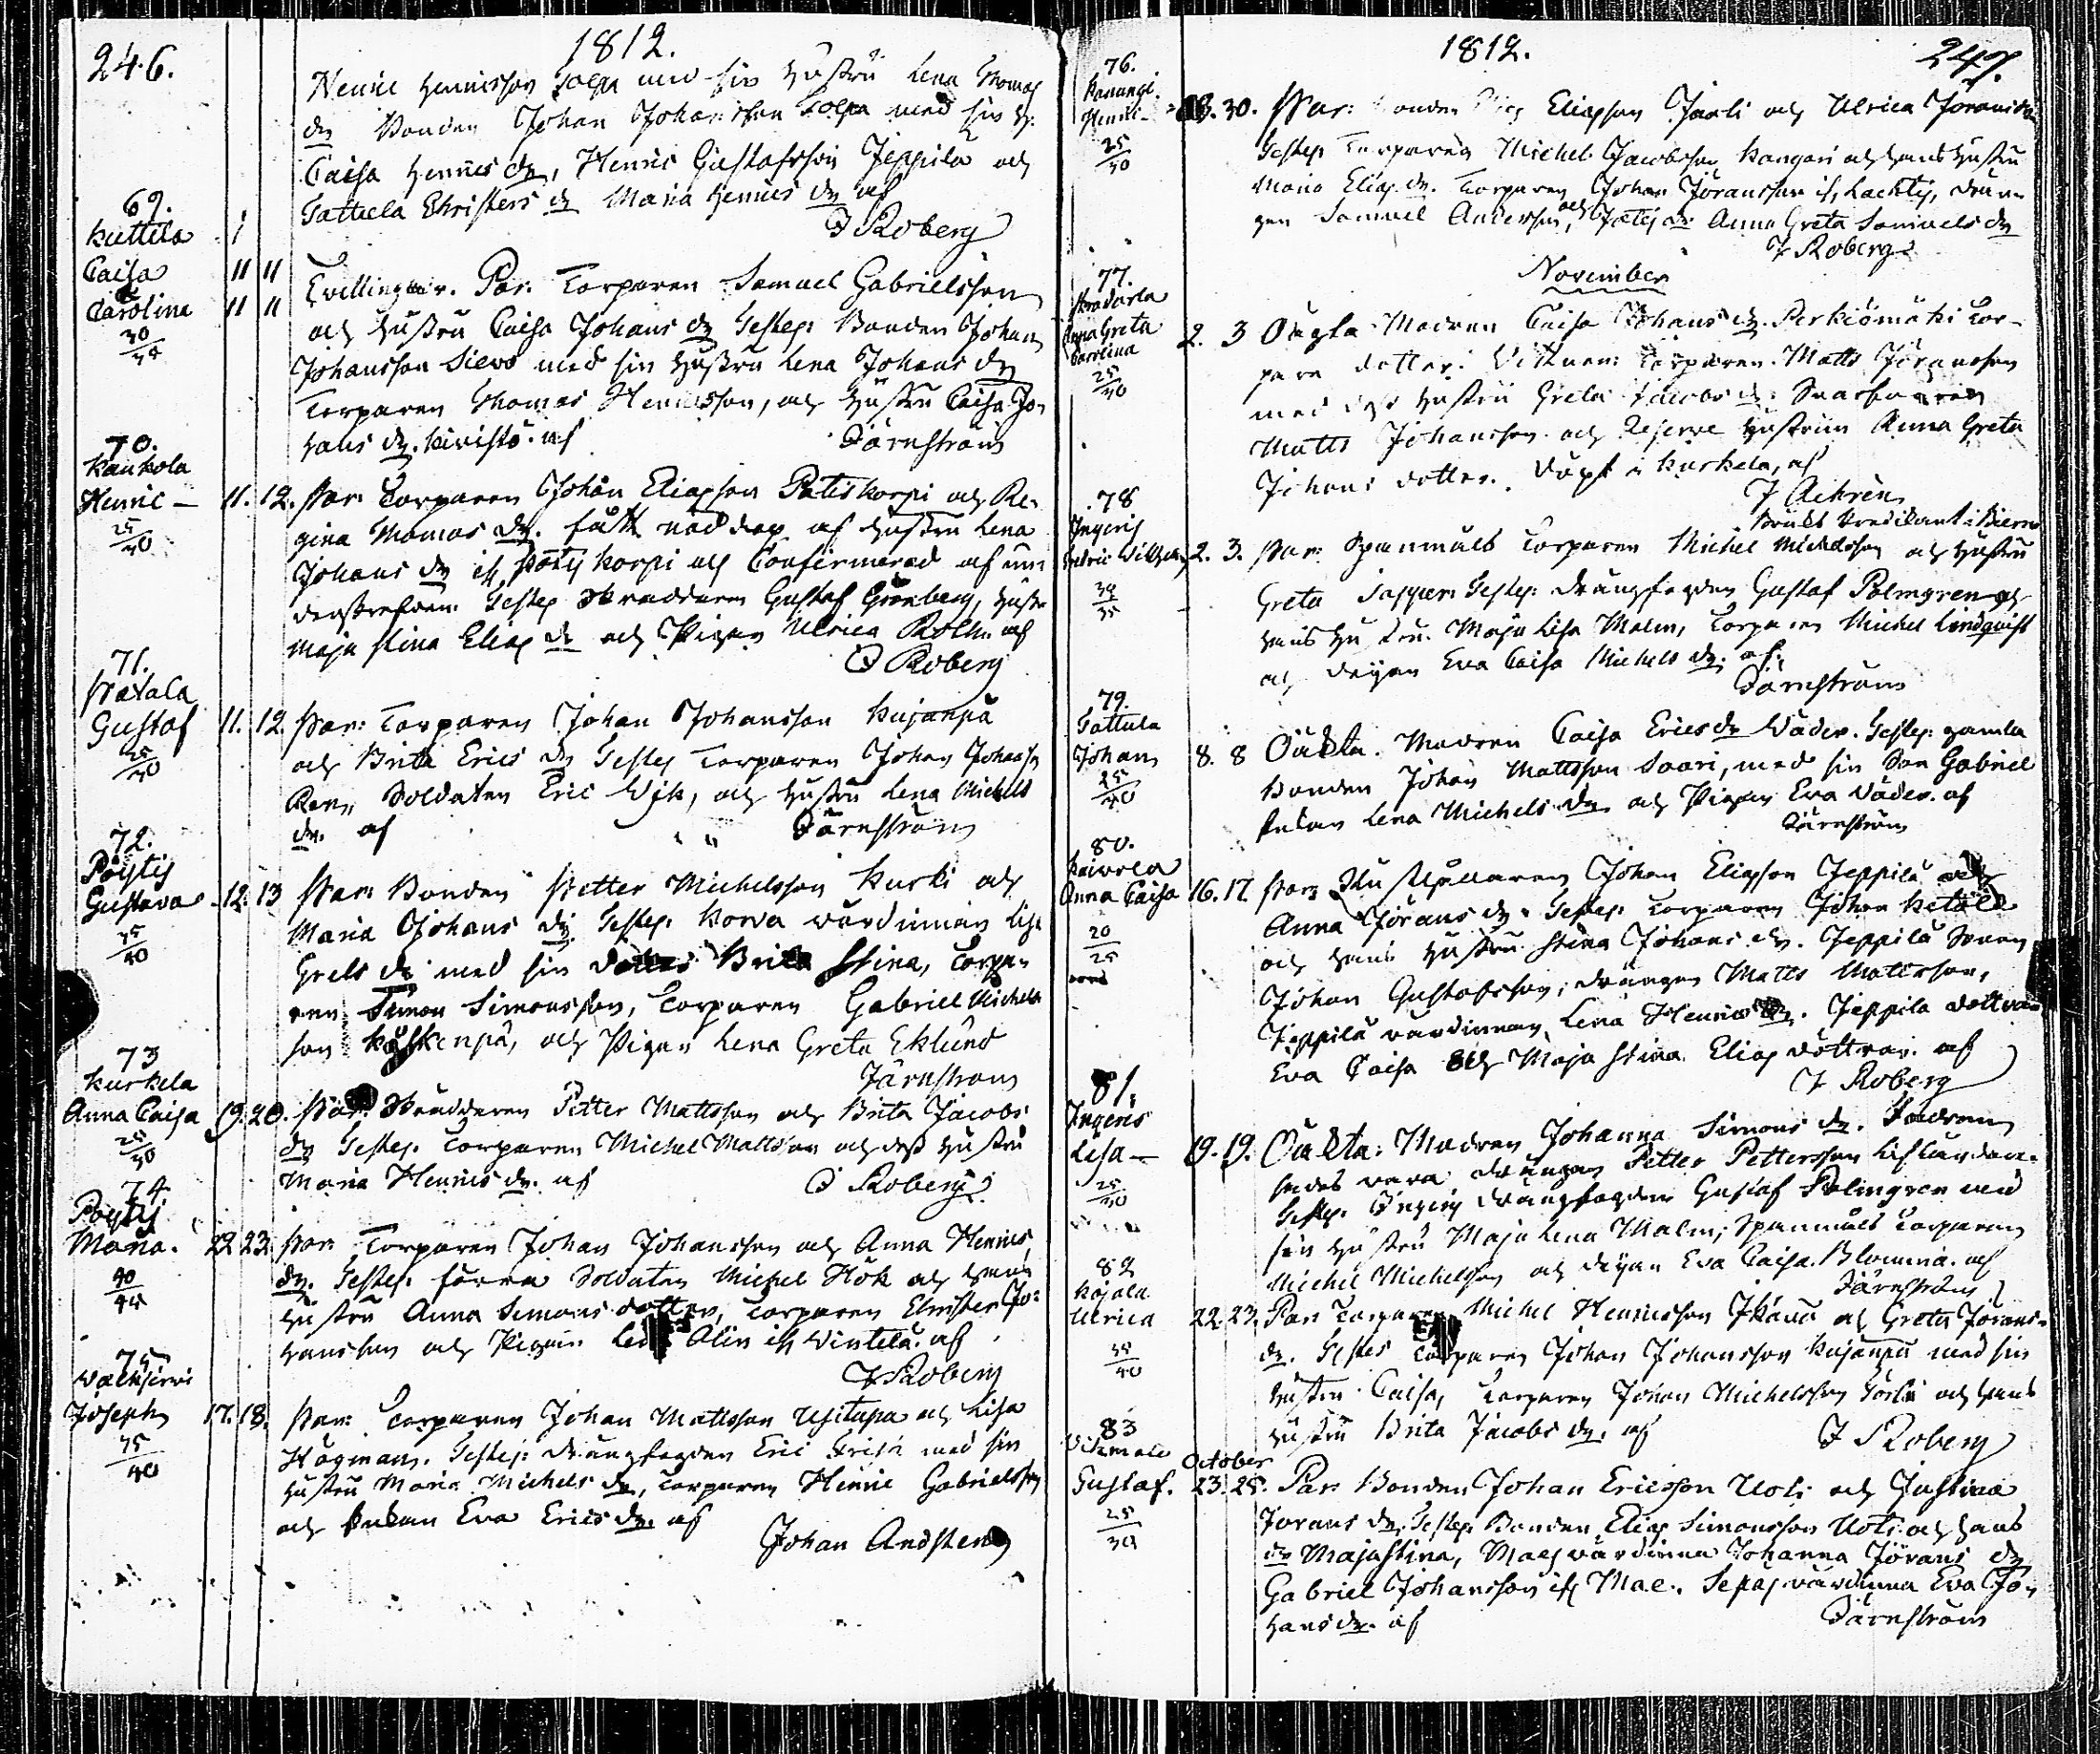 246.
1812.
Henric Henricsson Tolpa med sin Hustru Lena Thomas
dr Bonden Johan Johansson Tolpa med sin H:
Caisa Henrics dr, Henric Gustafsson Jeppila och
Tattula Christers dr Maria Henrics dr af
J Roberg
69.
Kuttila
Caisa
&
Carolina
30/35
11 11
11 11
Tvillingar. Par: Torparen Samuel Gabrielsson
och Hustru Caisa Johans dr Testes: Bonden Johan
Johansson Sievo med sin Hustru Lena Johans dr
Torparen Thomas Henricsson, och Hustru Caisa Jo-
hans dr. Kivistö. af
Järnström
70.
Kaukola
Henric
25/30
11. 12. Par: Torparen Johan Eliasson Pätiskorpi och Re-
gina Thomas dr. fått nöddop af Hustru Lena
Johans dr if korpi och Confirmerad af un-
dertecknad. Testes Skräddaren Gustaf Grönberg, Hustr
Maja Stina Elias dr och Pigan Ulrica af
J Roberg
71.
Gustaf
25/30
11. 12 Par: Torparen Johan Johansson Kujanpä
och Brita Erics dr Testes Torparen Johan Johansson
Soldaten Eric Wik, och Hustru Lena Michels
dr. af
Järnström
72.
Pöytis
Gustava
35/40
12. 13 Par: Bonden Petter Michelsson Kurki och
Maria Johans dr Testes: Korva värdinnan Lisa
Grels dr med sin dotter Brita Stina, Torpa-
ren Simon Simonsson, Torparen Gabriel Michels
son och Pigan Lena Greta Eklund
Järnström
73
Kurkela
Anna Caisa
25/30
19. 20. Par: Skräddaren Petter Mattsson och Brita Jacobs
dr Testes. Torparen Michel Mattsson och dess Hustru
Maria Henrics dr. af
J Roberg
74.
Pöytis
Maria.
40/45
22 23. Par: Torparen Johan Johansson och Anna Henrics
dr. Testes. förra Soldaten Michel Hök och hans
Hustru Anna Simons dotter, Torparen Christer Jo-
hansson och Pigan Olin if Vintela. af
J Roberg
75
Joseph
35/40
17. 18. Par: Torparen Johan Mattsson Usitupa och Lisa
Högman. Testes: Drängfogden Eric med sin
Hustru Maria Michels dr, Torparen Henric Gabrielsson
och Enkan Eva Erics dr. af
Johan Andsten
1812.
247.
76.
Kanungi
Henric
25/30
30. Par: Bonden Eliasson Jaali och Ulrica Jörans dr
Testes Torparen Michel Jacobsson Kangari och hans Hustru
Maria Elias dr. Torparen Johan Jöransson if Drän-
gen Samuel Andersson, och Anna Greta Samuels dr
J Roberg
November
77.
Anna Greta
Carolina
25/30
2. 3 Oägta. Modren Caisa Johans dr. Perkiömäki Tor-
pare dotter. Vittnen: Torparen Matts Jöransson
med dess Hustru Greta Jacobs dr.
Matts Johansson och Reserve Hustrun Anna Greta
Johans dotter. Döpt i Kurkela, af
J Achrén
Bruks Predikant i Bierno
78
Ingeris
Fredric Wilhelm
30/35
2. 3. Par: Spannmåls Torparen Michel Michelsson och Hustru
Greta Testes: Drängfogden Gustaf Palmgren och
hans Hustru Maja Lisa Malm, Torparen Michel Lindqvist
och Deijan Eva Caisa Michels dr. af
Järnström
79.
Tattula
Johan
25/30
8. 8 Oäkta. Modren Caisa Erics dr Väder. Testes: gamla
Bonden Johan Mattsson Saari, med sin Son Gabriel
Enkan Lena Michels dr och Pigan Eva Väder. af
Järnström
80.
Paivola
Anna Caisa
20/25
16. 17. Par: Hushållaren Johan Eliasson Jeppilä och
Anna Jörans dr. Testes: Torparen Johan Ketälä
och hans Hustru Stina Johans dr. Jeppilä Sonen
Johan Gustafsson, Drängen Matts Mattsson,
Jeppilä värdinnan, Lena Henrics dr. Jeppilä döttrar
Eva Caisa och Maja Stina Elias döttrar. af
J Roberg
81.
Ingeris
Lisa
25/30
19. 19. Oäkta: Modren Johanna Simons dr. Fadren
sades vara Drängen Petter Pettersson
Testes. Ingeris Drängfogden Gustaf Palmgren med
sin Hustru Maja Lena Malm; Spannmåls Torparen
Michel Michelsson och Deijan Eva Caisa Blomma. af
Järnström
82
Kojola
Ulrica
35/40
22. 23. Par: Torparen Michel Henricsson och Greta Jörans-
dr. Testes Torparen Johan Johansson Kujanpä med sin
Hustru Caisa, Torparen Johan Michelsson och hans
Hustru Brita Jacobs dr. af
J Roberg
83
October
Gustaf.
25/30
23. 25. Par: Bonden Johan Ericsson Uoti och Justina
Jörans dr. Testes Bonden Elias Simonsson Uoti och hans
dr Maja Stina, värdinna Johanna Jörans dr
Gabriel Johansson if värdinna Eva Jo-
hans dr. af
Järnström